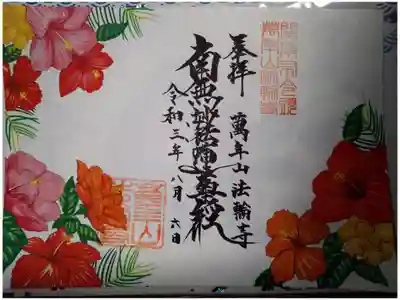 奉拝
萬年山法輪寺
南無妙法蓮華経
令和三年八月六日